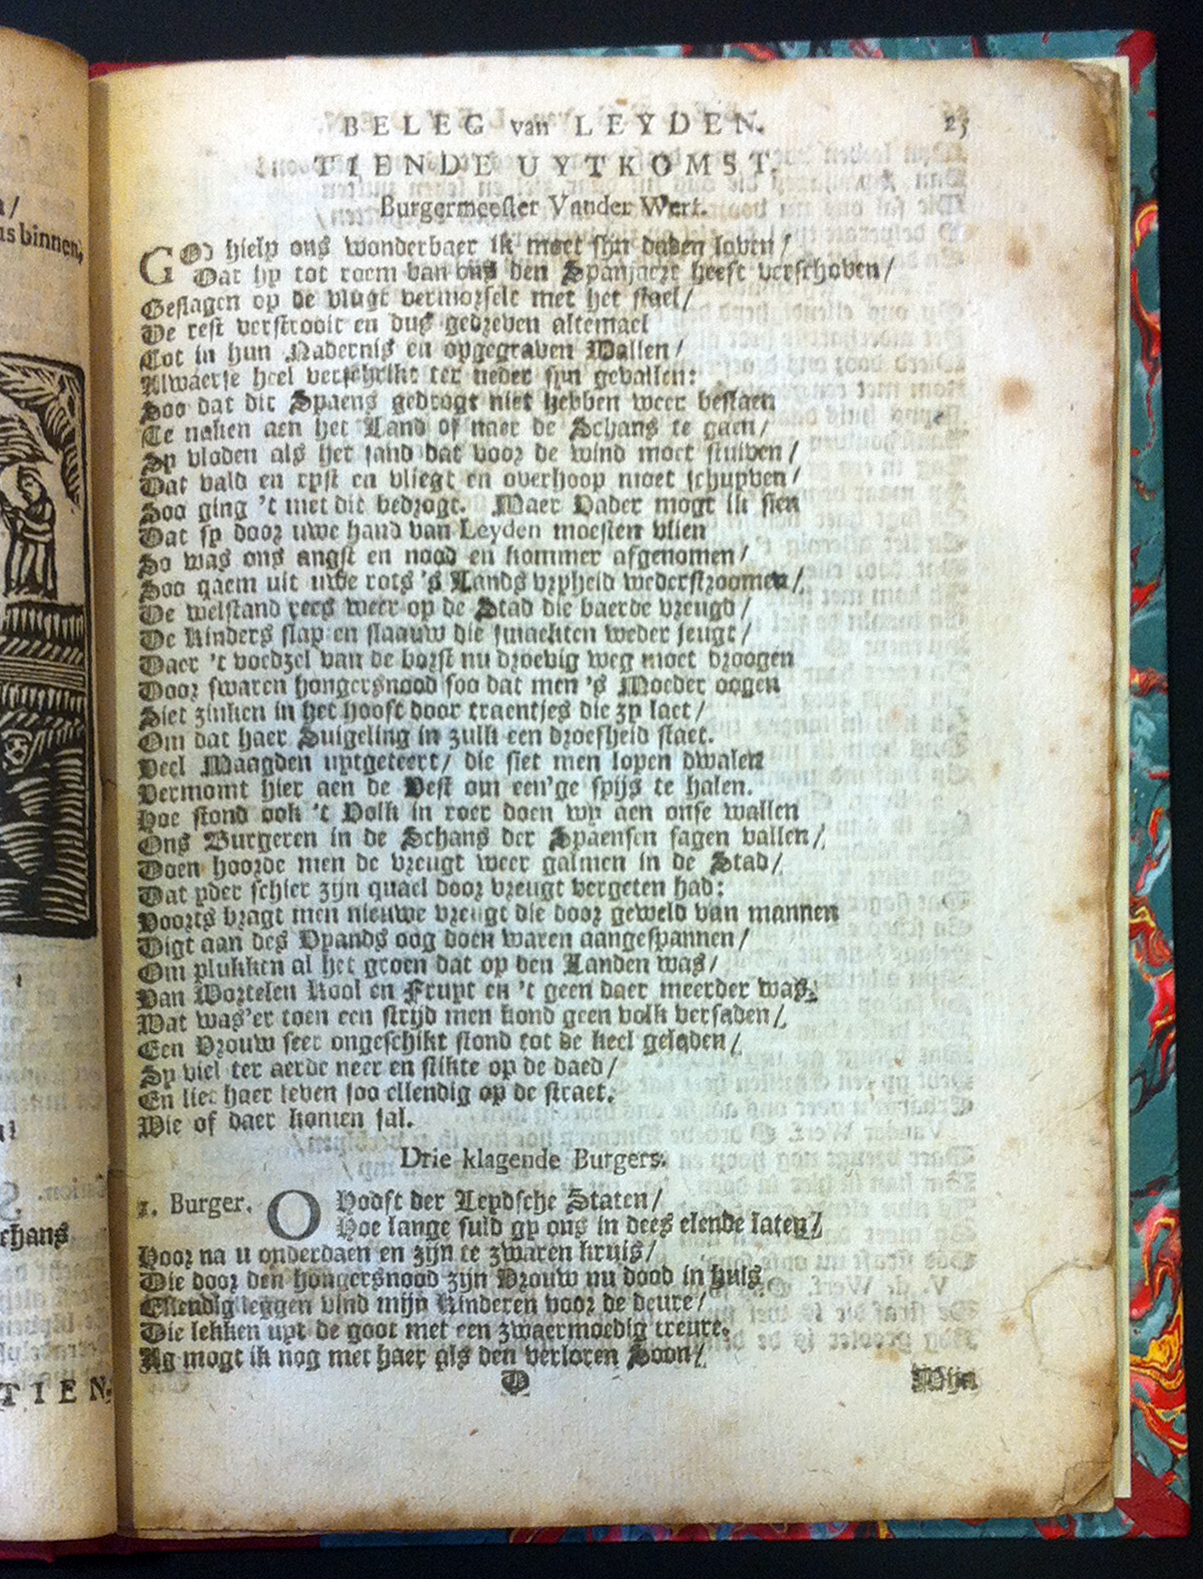 BELEG van LEYDEN. 25
TIENDE UYTKOMST.
Burgermeester Vander Werf.
GOD hielp ons wonderbaer ik moet sijn daden loven /
Dat hy tot roem van ons den Spanjaert heeft verschoven /
Geslagen op de vlugt vermorselt met het stael /
De rest verstrooit en dus gedreven altemael
Tot in hun Nadernis en opgegraven Wallen /
Alwaerse heel verschrikt ter neder sijn gevallen:
Soo dat dit Spaens gedrogt niet hebben weer bestaen
Te naken aen het Land of naer de Schans te gaen /
Sy vloden als het sand dat voor de wind moet stuiven /
Dat vald en ryst en vliegt en overhoop moet schuyven /
Soo ging 't met dit bedrogt. Maer Vader mogt ik sien
Dat sy door uwe hand van Leyden moesten vlien
So was ons angst en nood en kommer afgenomen /
Soo qaem uit uwe rots 's Lands vryheid wederstroomen /
De welstand rees weer op de Stad die baerde vreugd /
De kinders slap en slaauw die smachten weder jeugt /
Daer 't voedzel van de borst nu droevig weg moet droogen
Door swaren hongersnood soo dat men 's Moeder oogen
Siet zinken in het hooft door traentjes die zy laet /
Om dat haer Suigeling in zulk een droefheid staet.
Veel Maagden uytgeteert / die siet men lopen dwalen
Vermomt hier aen de Vest om een'ge spijs te halen.
Hoe stond ook 't Volk in roer doen wy aen onse wallen
Ons Burgeren in de Schans der Spaensen sagen vallen /
Doen hoorde men de vreugt weer galmen in de Stad /
Dat yder schier zijn quael door vreugt vergeten had:
Voorts bragt men nieuwe vreugt die door geweld van mannen
Digt aan des Vyands oog doen waren aangespannen /
Om plukken al het groen dat op den Landen was /
Van Wortelen Kool en Fruyt en 't geen daer meerder was,
Wat was'er toen een strijd men kond geen volk versaden /
Een Vrouw seer ongeschikt stond tot de keel geladen /
Sy viel ter aerde neer en stikte op de daed /
En liet haer leven soo ellendig op de straet.
Wie of daer komen sal.
Drie klagende Burgers.
1. Burger. O Voogt der Leydsche Staten /
Hoe lange suld gy ons in dees elende laten /
Voor na u onderdaen en zijn te zwaren kruis /
Die door den hongersnood zijn Vrouw nu dood in huis
Ellendig leggen vind mijn kinderen voor de deure /
Die lekken uyt de goot met een zwaermoedig treure,
Ag mogt ik nog met haer als den verloren Soon /
D Mijn
n /
us binnen,
chans
TIEN-